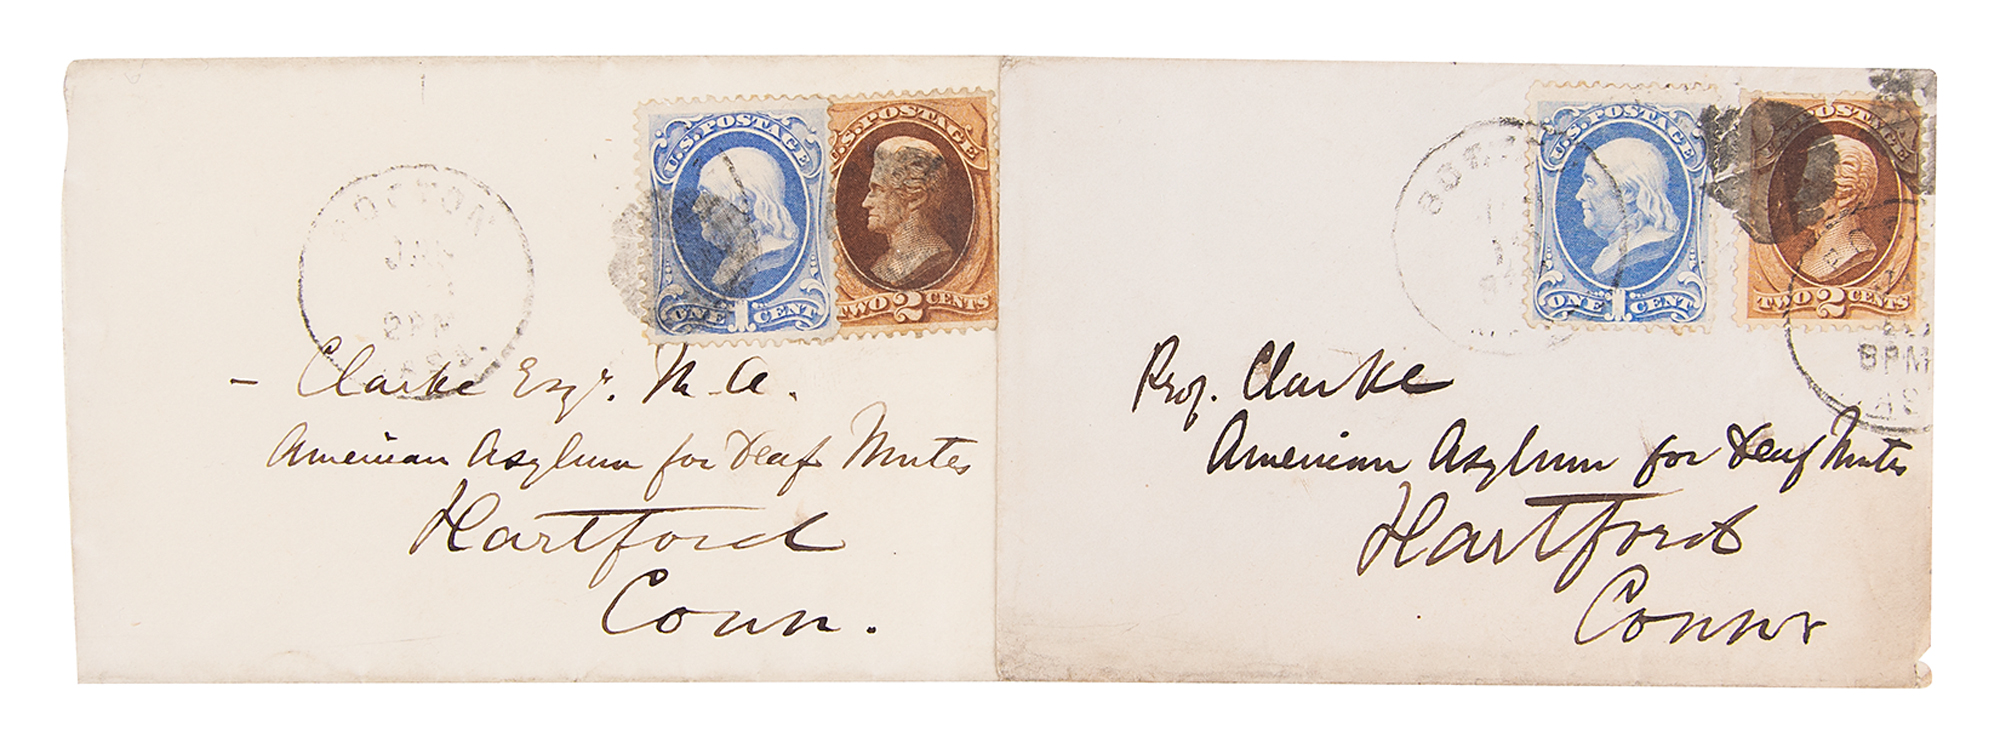 BOSTON
JUL
8 PM
U.S. POSTAGE
ONE 1 CENT
U.S. POSTAGE
TWO 2 CENTS
– Clarke Esqr. M. A.
American Asylum for Deaf Mutes
Hartford
Conn.
BOSTON
U.S. POSTAGE
ONE 1 CENT
U.S. POSTAGE
TWO 2 CENTS
8 PM
Prof. Clarke
American Asylum for Deaf Mutes
Hartford
Conn